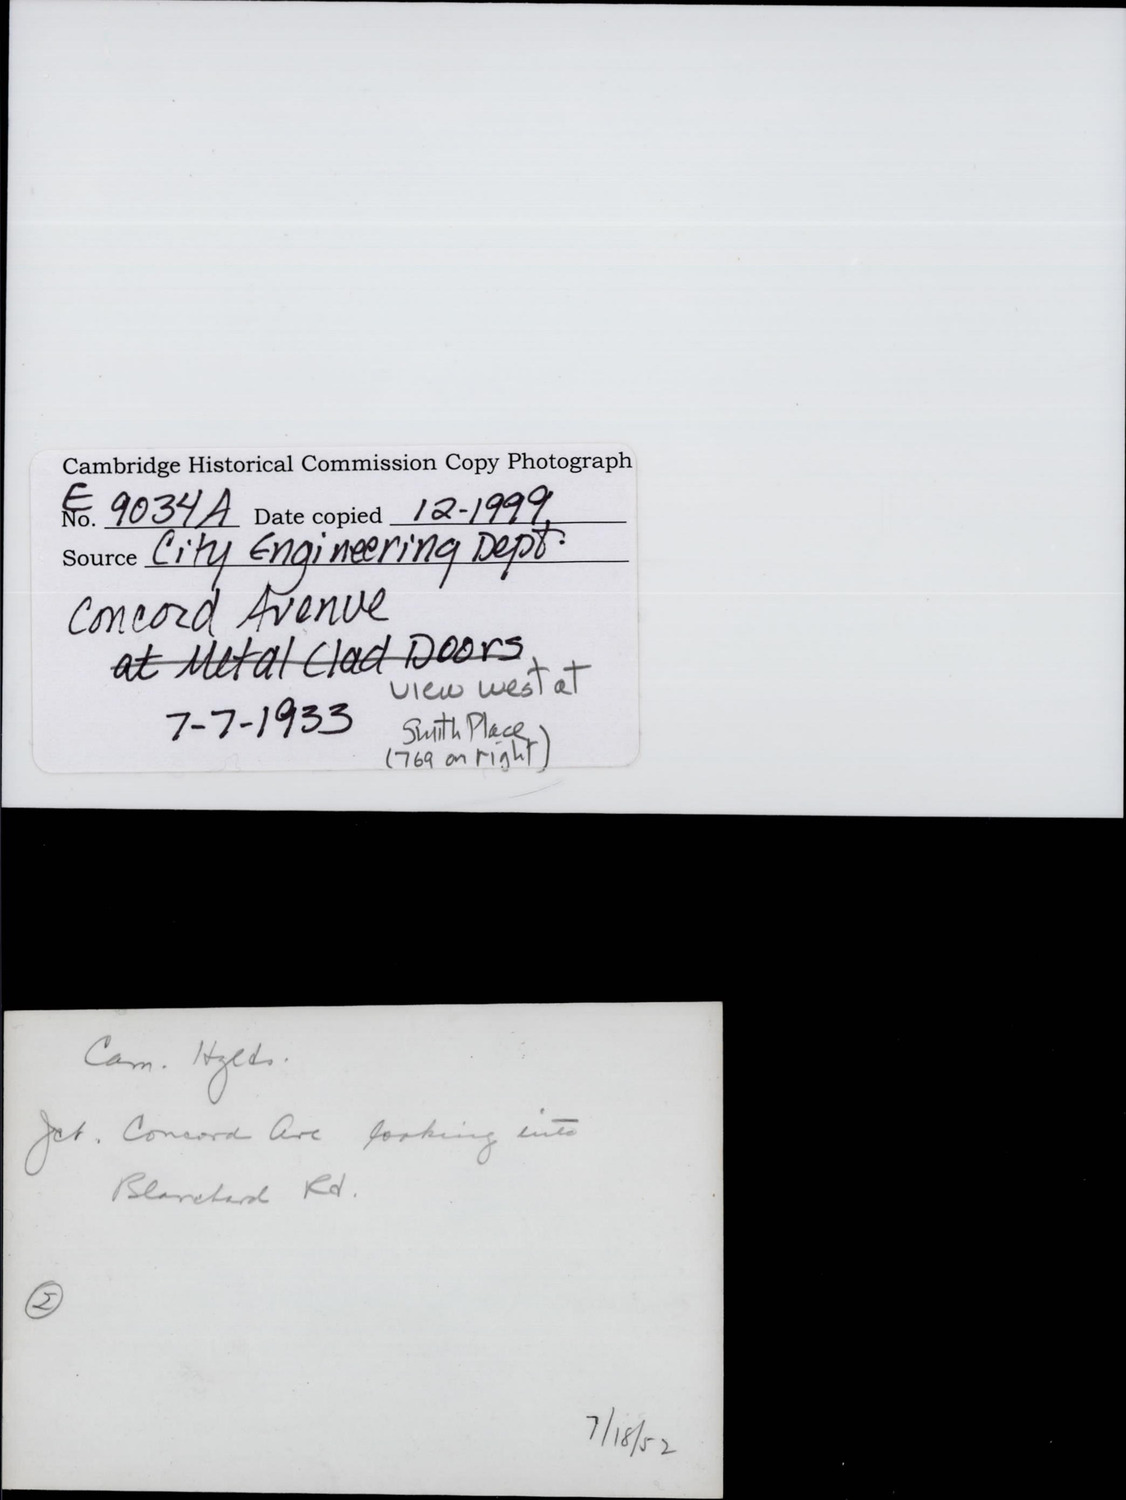 Cambridge Historical Commission Copy Photograph
E
No. 9034A Date copied 12-1999
Source City Engineering Dept.
Concord Avenue
at Metal Clad Doors
view west at
7-7-1933
Smith Place
(769 on right)
Cam. Hglds.
Jct. Concord Ave looking into
Blanchard Rd.
Σ
7/18/52